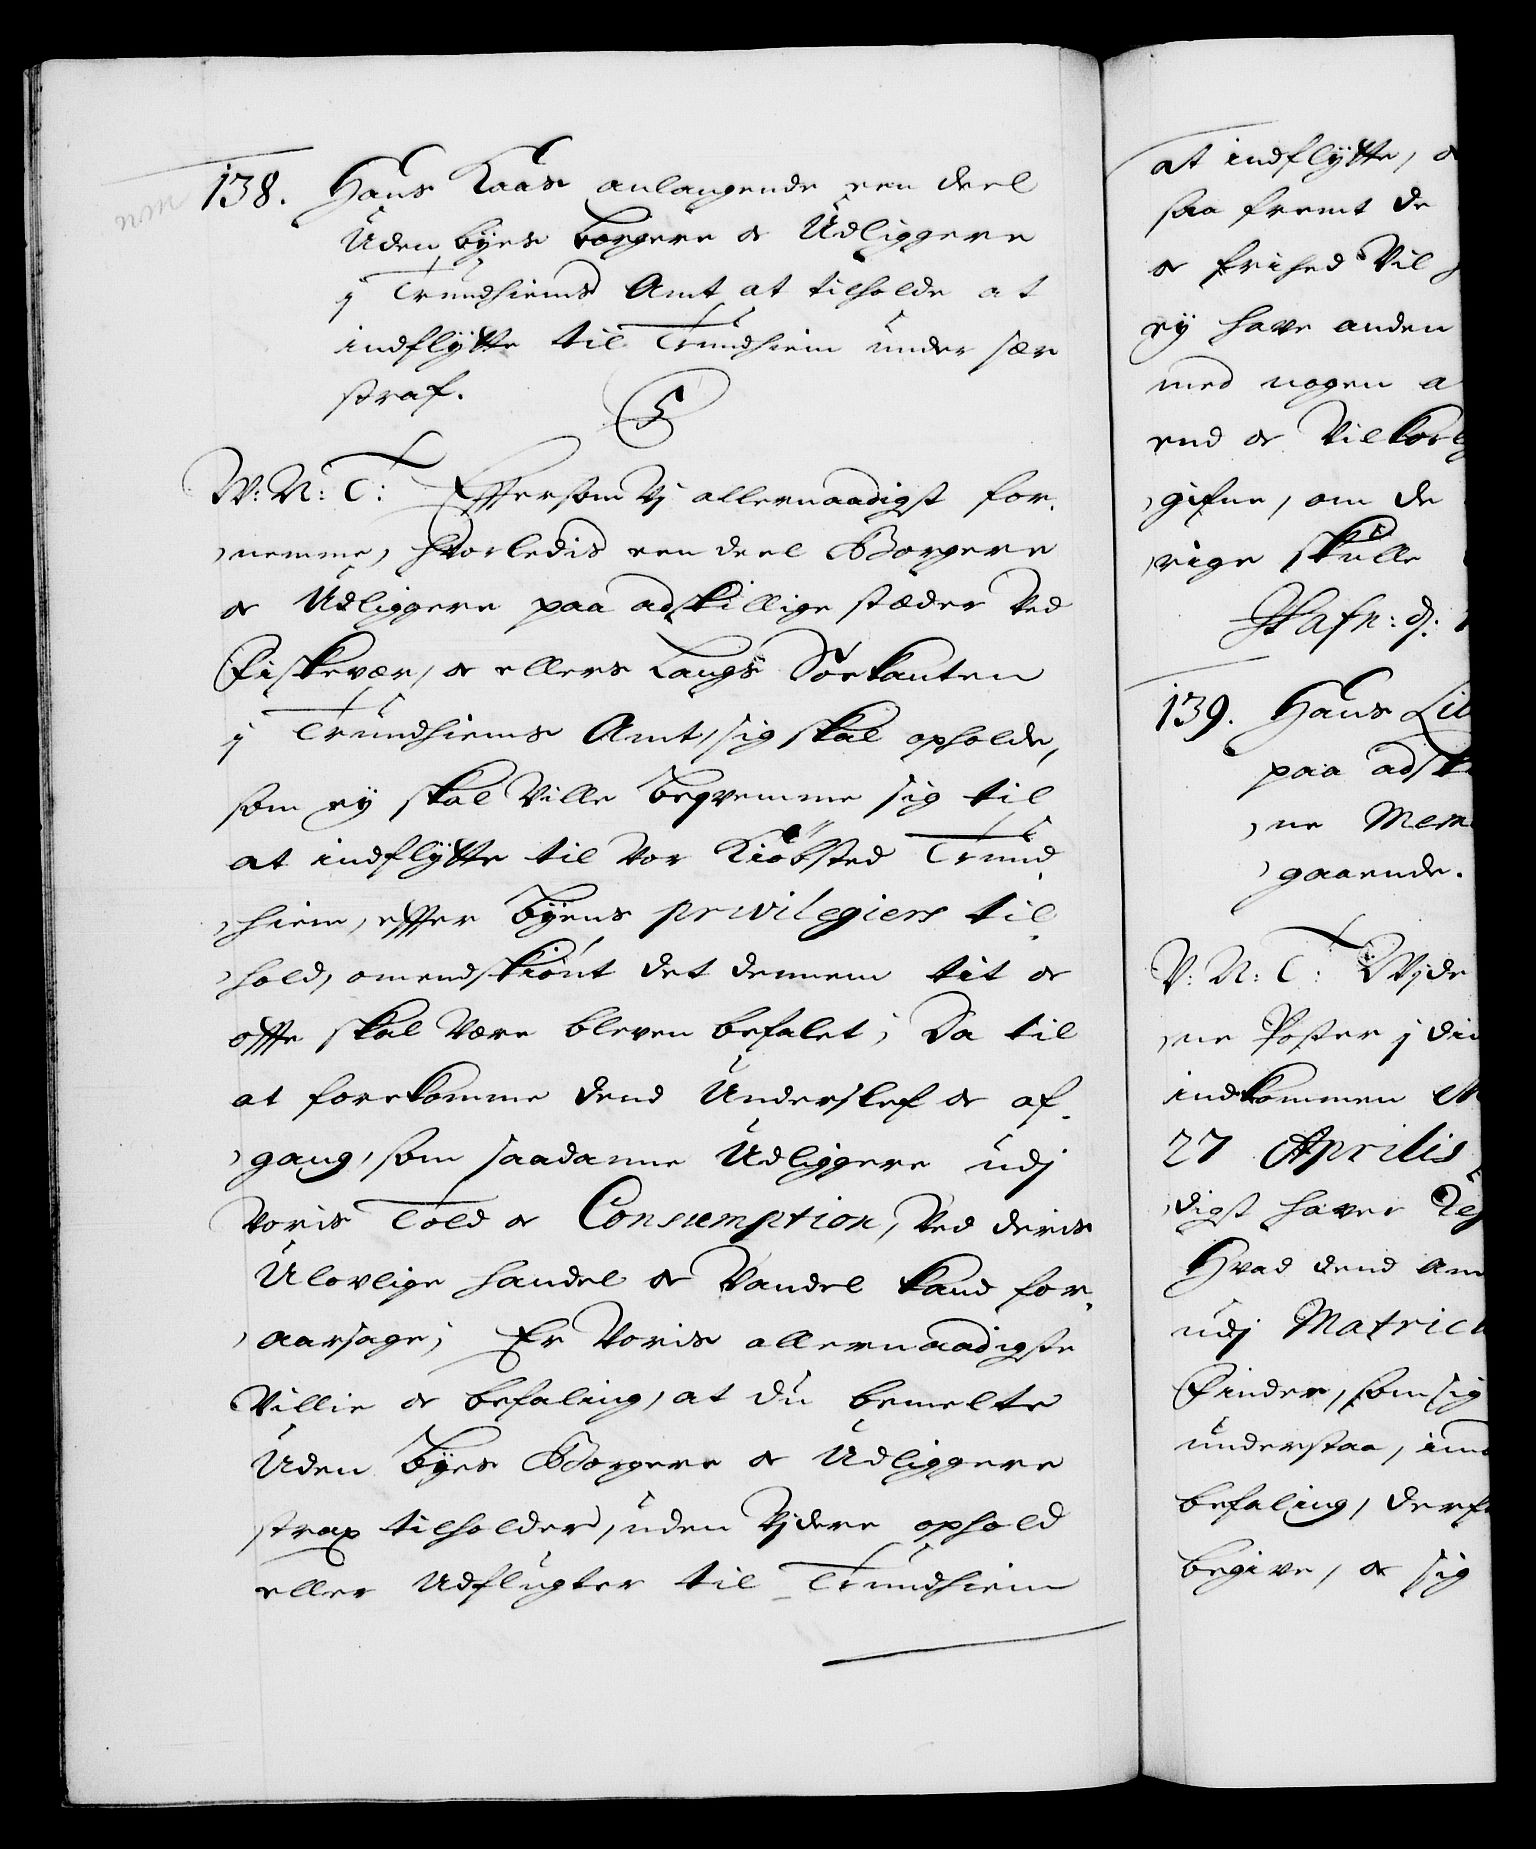 138. Hans Kaas anlangende een deel
Uden byes borgere & Udliggere
i Trundhiems Amt at tilholde at
indflytte til Trundhiem under sær
straf.
W: N: T: Effersom Vj allernaadigst for-
nemme, hvorledis een deel Borgere
& Udliggere paa adskillige stæder Ved
Fiskevær, & ellers Langs Söekanten
i Trundhiems Amt, sig skal opholde,
som ey skal Ville beqvemme sig til
at indflytte til Vor Kiöbsted Trund-
hiem, effter byens privilegiers til-
hold, omendskiönt det dennem tit &
offte skal Være bleven befalet; Da til
at forekomme dend Underslef & af-
gang, som saadanne Udliggere udj
Voris Told & Consumption, Ved deris
Ulovlige handel & Vandel kand for-
aarsage; Er Voris allernaadigste
Villie & befaling, at du bemelte
Uden byes Borgere & Udliggere
strax tilholder, uden Vjdere ophold
eller Udflugter til Trundhiem
at indflytte, &
saa fremt de
& frihed Vil
ey have anden
med nogen a
end & Vilkorl
gifne, om de
rige skulle
Hafn: d:
139. Hans Lil
paa adsk
ne Mem
gaaende.
V: N: T: Vjde
ne Poster j din
indkommen M
27 Aprilis
digst haver Re
Hvad dend Am
udj Matricu
Finder, som sig
understaa, im
befaling, derf
begive, & sig